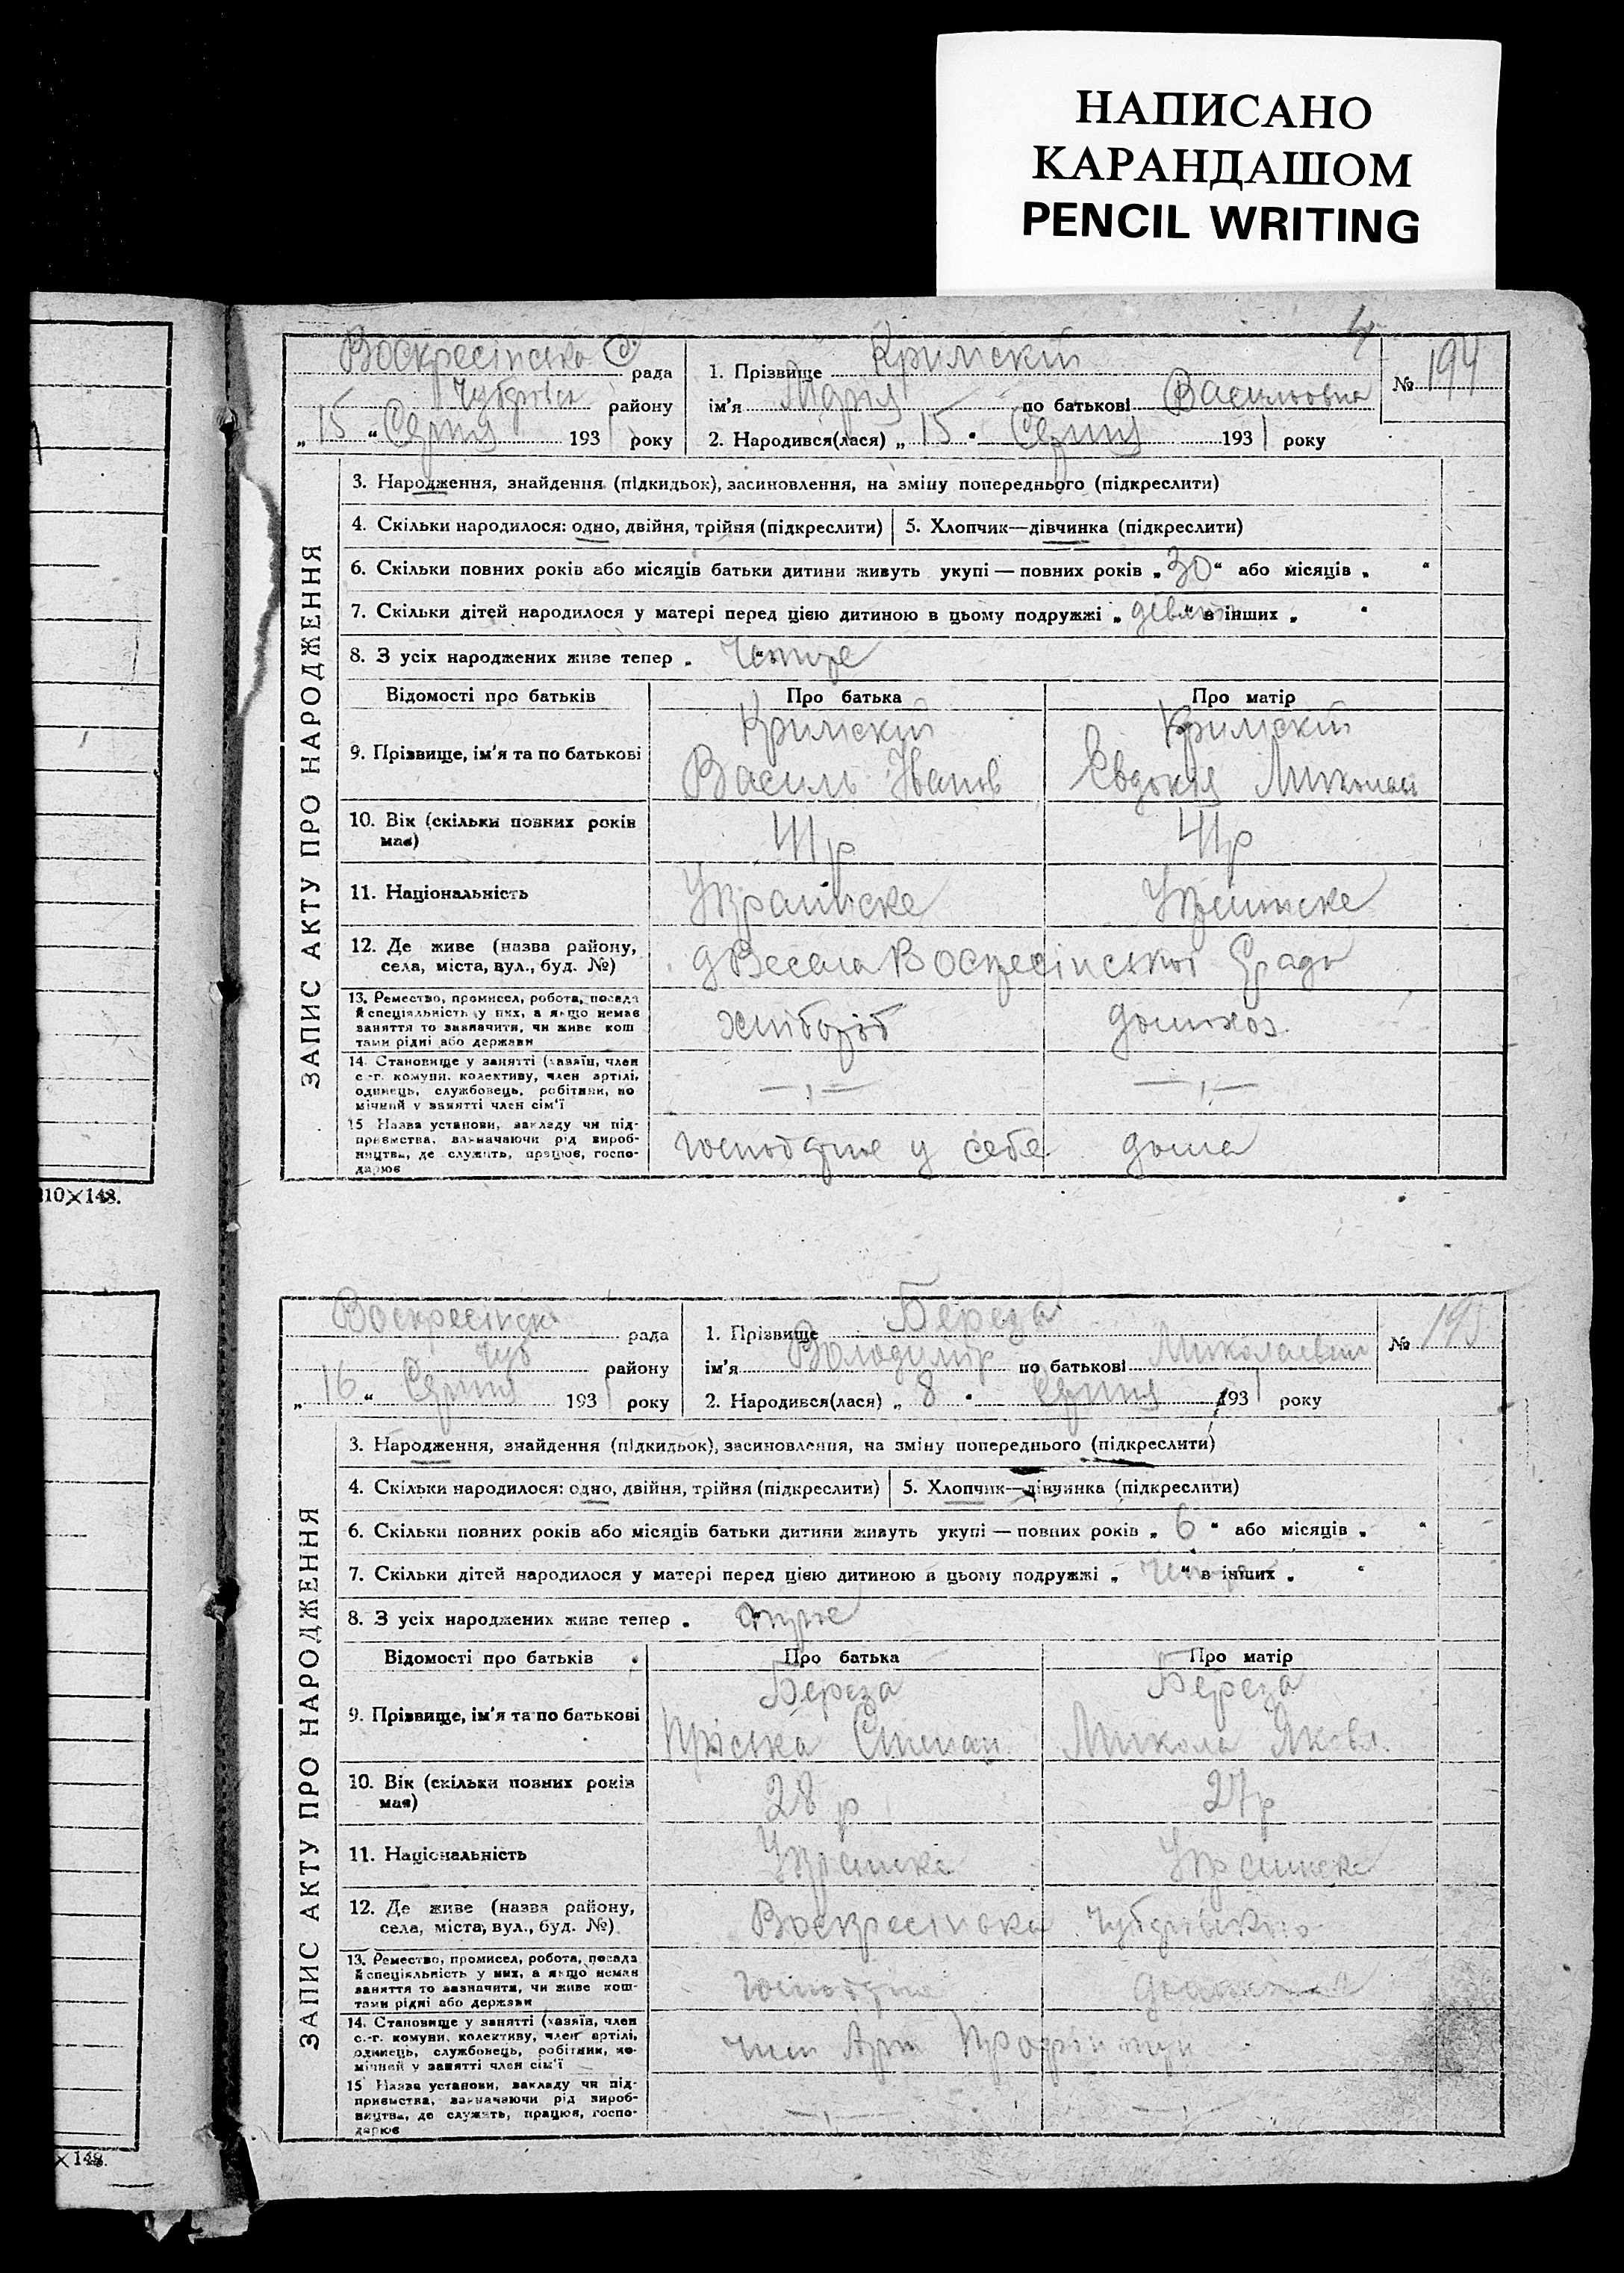 НАПИСАНО
КАРАНДАШОМ
PENCIL WRITING
4
Воскресінська С. рада
Чубарівськ району
„15“ Серпня 1931 року
1. Прізвище Кримскій
ім'я Марія по батькові Васильовна
№ 194
2. Народився(лася) „15“ Серпня 1931 року
ЗАПИС АКТУ ПРО НАРОДЖЕННЯ
3. Народження, знайдення (підкидьок), засиновлення, на зміну попереднього (підкреслити)
4. Скільки народилося: одно, двійня, трійня (підкреслити) 5. Хлопчик—дівчинка (підкреслити)
6. Скільки повних років або місяців батьки дитини живуть укупі — повних років „30“ або місяців „ “
7. Скільки дітей народилося у матері перед цією дитиною в цьому подружжі „девять“ в інших „ “
8. З усіх народжених живе тепер „ Чотире
Відомості про батьків Про батька Про матір
9. Прізвище, ім'я та по батькові
Кримскій Кримскій
Василь Іванов Евдокія Миколаи
10. Вік (скільки повних років має) 41р 41р
11. Національність Українске
12. Де живе (назва району, села, міста, вул., буд. №) Весела Воскресінської С ради
13. Ремество, промисел, робота, посада
й спеціяльність у них, а якщо немає
заняття то зазначити, чи живе кош
тами рідні або держави
хлібороб домхоз.
14. Становище у занятті (хазяїн, член
с.-г. комуни, колективу, член артілі,
одинець, службовець, робітник, по
мічний у занятті член сім'ї
15 Назва установи, закладу чи під-
приємства, зазначаючи рід вироб-
ництва, де служить, працює, госпо-
дарює
у себе дома
10×148.
Воскресінск рада
Чуб району
„16“ Серпня 1931 року
1. Прізвище Береза
ім'я Володимір по батькові Миколаевич
№ 195
2. Народився(лася) „8“ Серпня 1931 року
ЗАПИС АКТУ ПРО НАРОДЖЕННЯ
3. Народження, знайдення (підкидьок), засиновлення, на зміну попереднього (підкреслити)
4. Скільки народилося: одно, двійня, трійня (підкреслити) 5. Хлопчик—дівчинка (підкреслити)
6. Скільки повних років або місяців батьки дитини живуть укупі — повних років „6“ або місяців „ “
7. Скільки дітей народилося у матері перед цією дитиною в цьому подружжі „ “ в інших „ “
8. З усіх народжених живе тепер „
Відомості про батьків Про батька Про матір
9. Прізвище, ім'я та по батькові
Береза Береза
Пріська Степан. Микола Яковл.
10. Вік (скільки повних років має) 28 р 27р
11. Національність
12. Де живе (назва району, села, міста, вул., буд. №) Воскресінвка
13. Ремество, промисел, робота, посада
й спеціяльність у них, а якщо немає
заняття то зазначити, чи живе кош-
тами рідні або держави
14. Становище у занятті (хазяїн, член
с.-г. комуни, колективу, член артілі,
одинець, службовець, робітник, по-
мічний у занятті член сім'ї
член Арт
15 Назва установи, закладу чи під-
приємства, зазначаючи рід вироб-
ництва, де служить, працює, госпо-
дарює
×148.